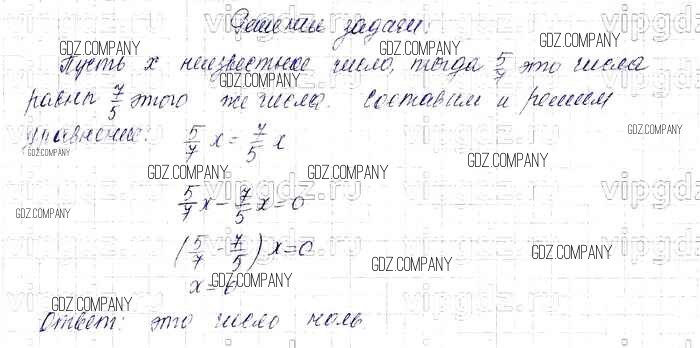 Решение задачи.
Пусть x неизвестное число, тогда 5/7 это числа
равны 7/5 этого же числа. Составим и решим
уравнение: 5/7 x = 7/5 x
5/7 x - 7/5 x = 0
(5/7 - 7/5) x = 0
x = 0
Ответ: это число ноль
GDZ.COMPANY
GDZ.COMPANY
GDZ.COMPANY
GDZ.COMPANY
GDZ.COMPANY
GDZ.COMPANY
GDZ.COMPANY
GDZ.COMPANY
GDZ.COMPANY
GDZ.COMPANY
GDZ.COMPANY
GDZ.COMPANY
GDZ.COMPANY
GDZ.COMPANY
vipgdz.ru